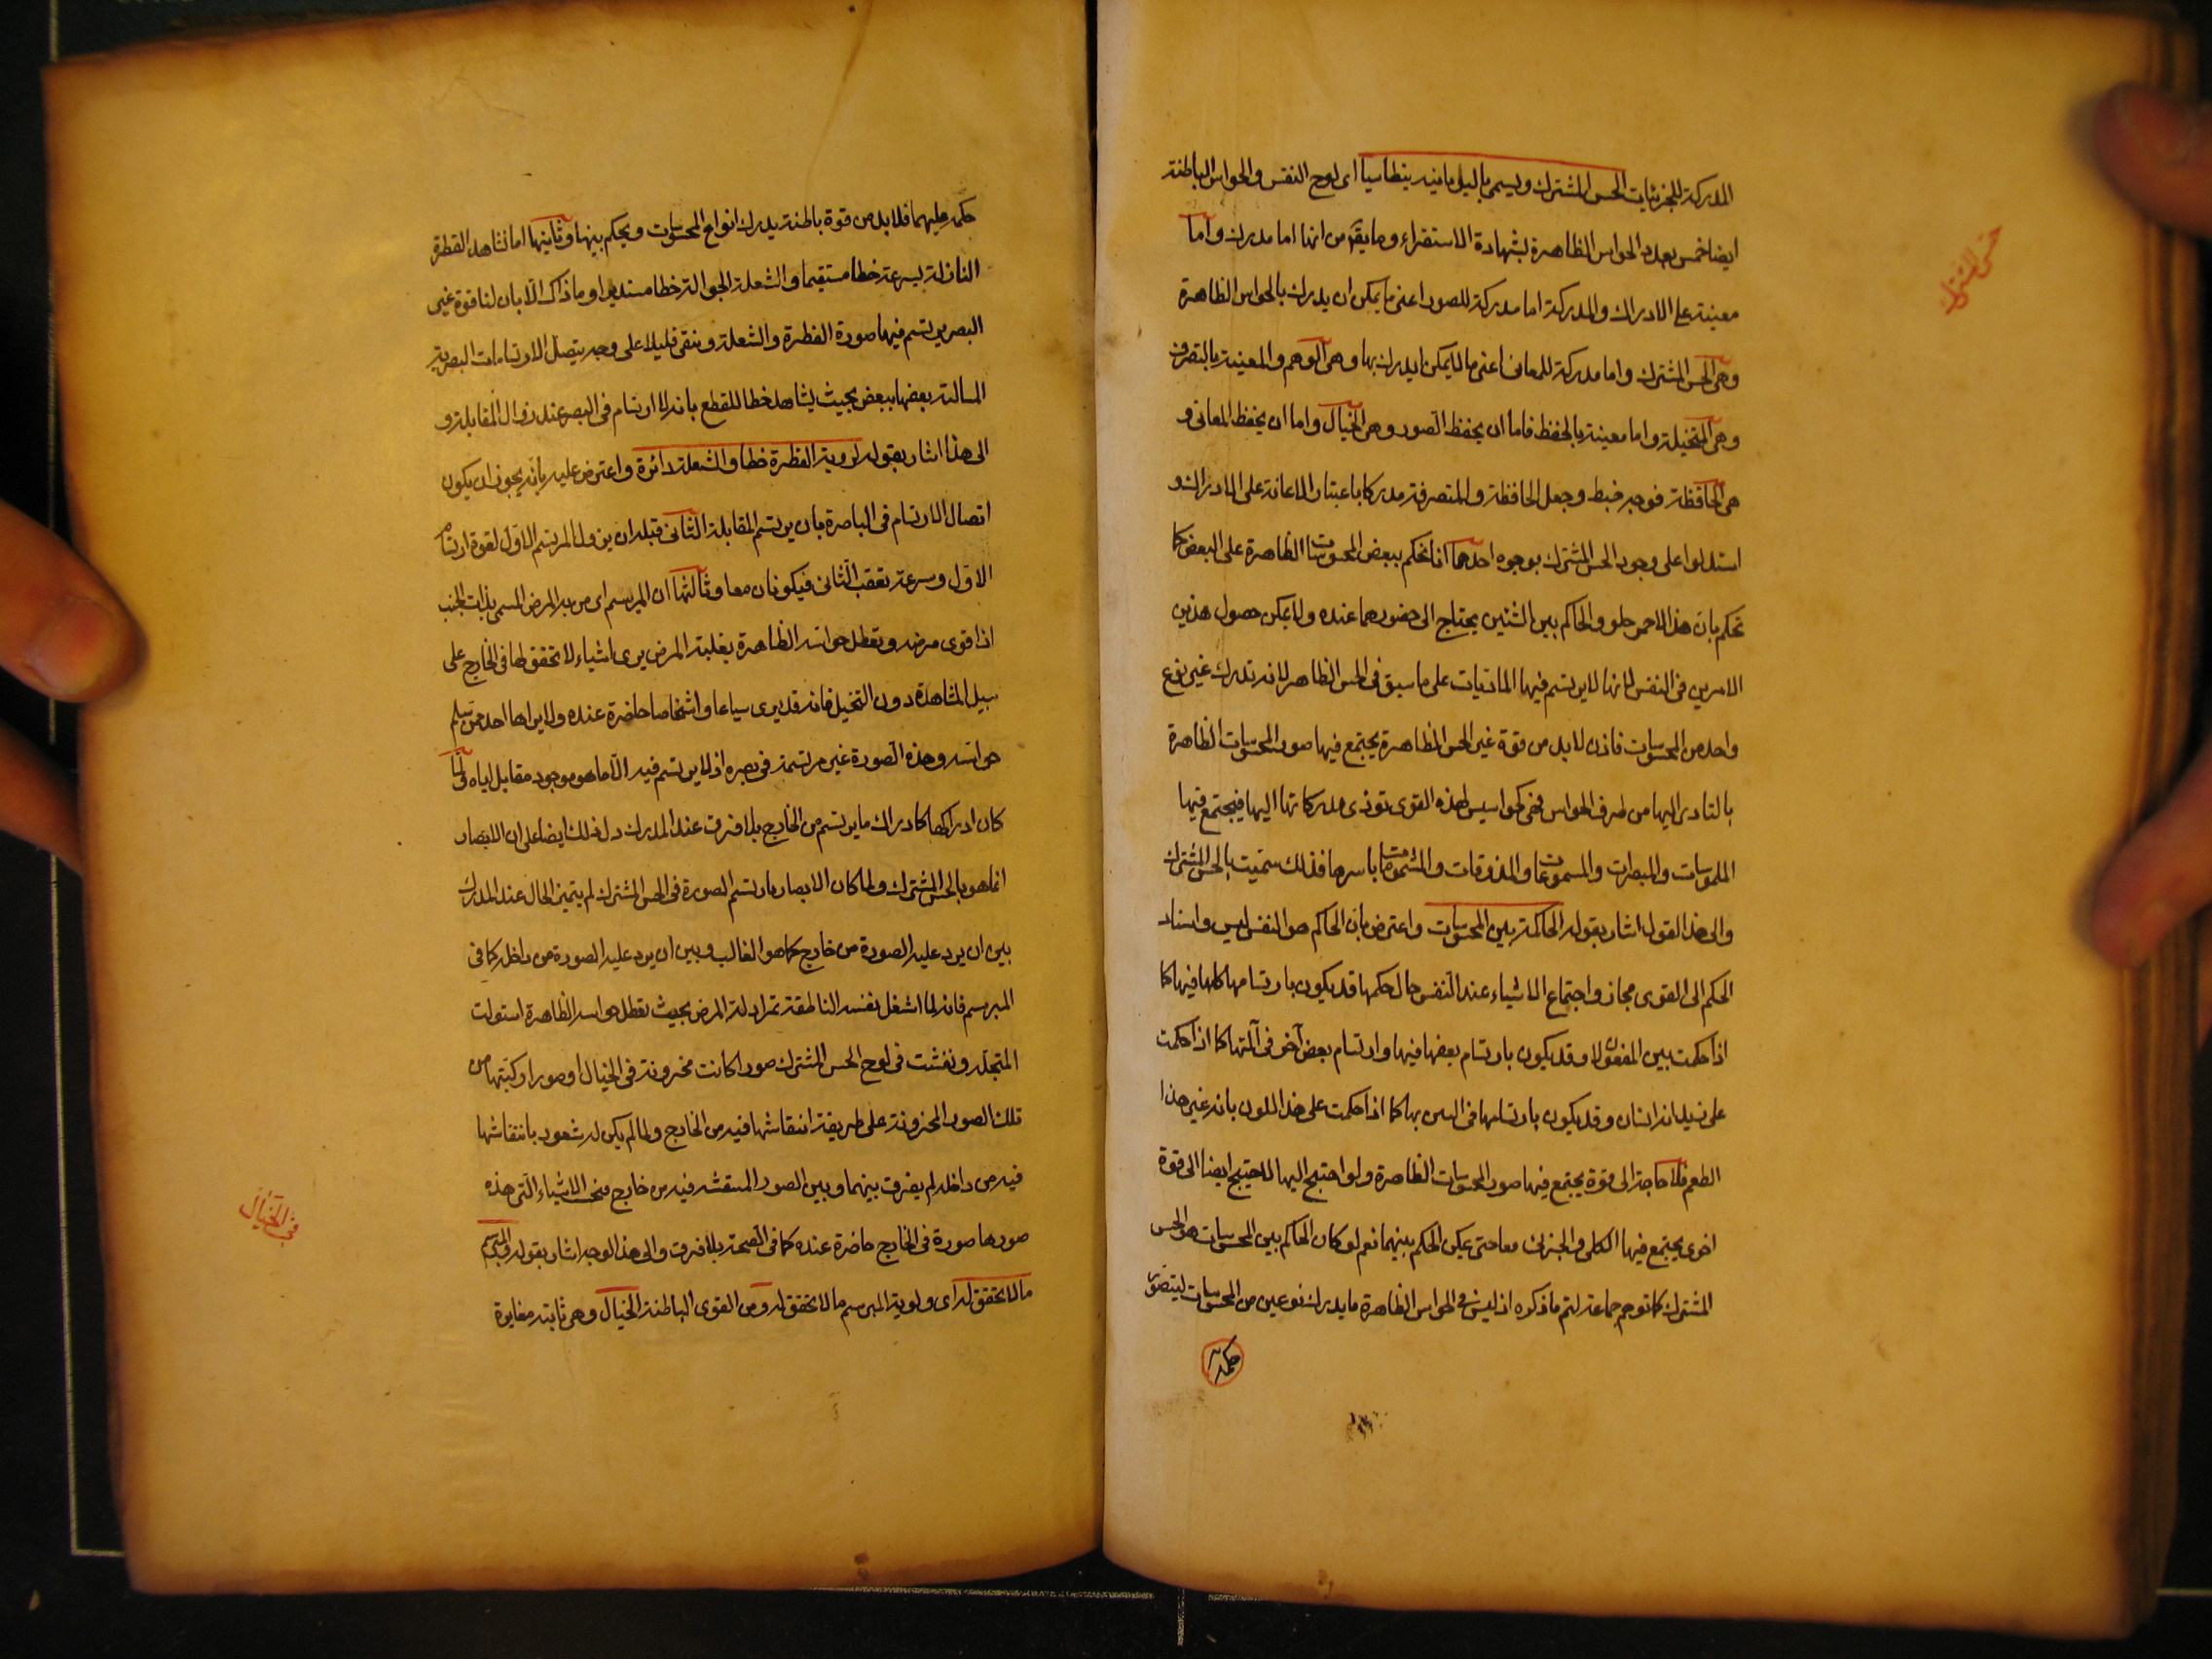 المدركة للجزئيات الحس المشترك ويسمى باليونانية بنطاسيا اى لوح النفس والحواس الباطنة
ايضا خمس بعدد الحواس الظاهرة بشهادة الاستقراء وما يق من انها اما مدرك واما
معينة على الادراك والمدركة اما مدركة للصور اعنى ما يمكن ان يدرك بالحواس الظاهرة
وهى الحس المشترك واما مدركة للمعانى اعنى ما لا يمكن ايدرك بها وهى الوهم والمعينة بالتصرف
وهى المتخيلة واما معينة بالحفظ فاما ان يحفظ الصور وهى الخيال واما ان يحفظ المعانى و
هى الحافظة فوجه ضبط وجعل الحافظة والمتصرفة مدركا باعتبار الاعانة على الادراك و
استدلوا على وجود الحس المشترك بوجوه احدها انا نحكم ببعض المحسوسات الظاهرة على البعض كما
نحكم بان هذا الاحمر حلو والحاكم بين الشئين يحتاج الى حضورهما عنده ولا يمكن حصول هذين
الامرين فى النفس لانها لا يرتسم فيها الماديات على ما سبق فى الحس الظاهر لانه تدرك غير نوع
واحد من المحسوسات فاذن لا بد من قوة غير الحس الظاهرة يجتمع فيها صور المحسوسات الظاهرة
بالتادى اليها من طرف الحواس فهى كجواسيس لهذه القوى تؤدى مدركاتها اليها فيجتمع فيها
الملموسات والمبصرات والمسموعات والمذوقات والمشمومات باسرها فذلك سميت بالحس المشترك
والى هذا القول اشار بقوله الحاكمة بين المحسوسات واعترض بان الحاكم هو النفس ليس واسناد
الحكم الى القوى مجاز واجتماع الاشياء عند النفس حال حكمها قد يكون بارتسامها كلها فيها كما
اذا حكمت بين المعقولا وقد يكون بارتسام بعضها فيها وارتسام بعض آخر فى آلتها كما اذا حكمت
على زيد انه انسان وقد يكون بارتسامها فى التين بها كما اذا حكمت على هذا اللون بانه غير هذا
الطعم فلا حاجة الى قوة يجتمع فيها صور المحسوسات الظاهرة ولو احتيج اليها لاحتيج ايضا الى قوة
اخرى يجتمع فيها الكلى والجزئى معا حتى يمكن الحكم بينهما نعم لو كان الحاكم بين المحسوسات هو الحس
المشترك كما توهم جماعة لتم ما ذكروه اذ ليس فى الحواس الظاهرة ما يدرك نوعين من المحسوسات ليتصور
حكمه
حس المشترك
حكمه عليهما فلا بد من قوة باطنة يدرك انواع المحسوسات ويحكم بينها وثانيها اما نشاهد القطرة
النازلة بسرعة خطا مستقيما والشعلة الجوالة خطا مستديرا وما ذاك الا بان لنا قوة غير
البصر يرتسم فيها صورة القطرة والشعلة وتبقى قليلا على وجه يتصل الارتسامات البصرية
المتتالية بعضها ببعض بحيث يشاهد خطا للقطع بانه لا ارتسام فى البصر عند زوال المقابلة و
الى هذا اشار بقوله لروية القطرة خطا والشعلة دائرة واعترض عليه بانه يجوز ان يكون
اتصال الارتسام فى الباصرة بان يرتسم المقابلة الثانى قبل ان يزول المرتسم الاول لقوة ارتسام
الاول وسرعة تعقب الثانى فيكونان معا وثالثها ان المبرسم اى من به المرض المسمى بذات الجنب
اذا قوى مرضه وتعطل حواسه الظاهرة بغلبة المرض يرى اشياء لا تحقق لها فى الخارج على
سبيل المشاهدة دون التخيل فانه قد يرى سباعا واشخاصا حاضرة عنده ولا يراها احد ممن سلم
حواسه وهذه الصورة غير مرتسمة فى بصره اذ لا يرتسم فيه الا ما هو موجود مقابل اياه ولما
كان ادراكها كادراك ما يرتسم من الخارج بلا فرق عند المدرك دل ذلك ايضا على ان الابصار
انما هو بالحس المشترك ولما كان الابصار بارتسم الصورة فى الحس المشترك لم يتميز الحال عند المدرك
بين ان يرد عليه الصورة من خارج كما هو الغالب وبين ان يرد عليه الصورة من داخله كما فى
المبرسم فانه لما اشتغل نفسه الناطقة بمزاولة المرض بحيث تعطل حواسه الظاهرة استولت
المتخيلة ونقشت فى لوح الحس المشترك صورا كانت مخزونة فى الخيال او صورا ركبتها من
تلك الصور المخزونة على طريقة انتقاشها فيه من الخارج ولما لم يكن له شعور بانتقاشها
فيه من داخله لم يفرق بينهما وبين الصور المنتقشة فيه من خارج فتحسب الاشياء التى هذه
صورها صورة فى الخارج حاضرة عنده كما فى الصحة بلا فرق والى هذا الوجه اشار بقوله والمبرسم
ما لا تحقق له اى ولروية المبرسم ما لا تحقق له ومن القوى الباطنة الخيال وهى ثابتة مغايرة
فى الخيال